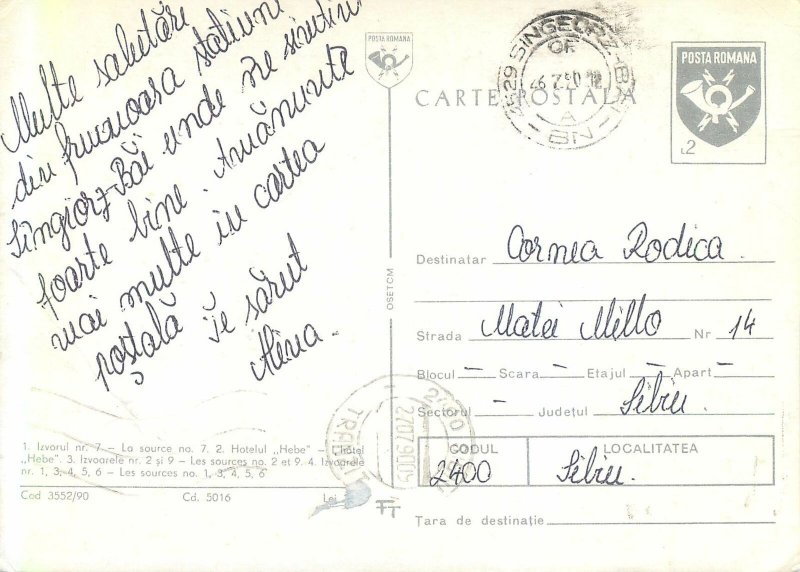 Multe salutări
din frumoasa stațiune
Sîngiorz-Băi unde ne simțim
foarte bine. Amănunte
mai multe în cartea
poștală Te sărut
Alina.
1. Izvorul nr. 7 – La source no. 7. 2. Hotelul „Hebe" – L'hôtel
„Hebe". 3. Izvoarele nr. 2 și 9 – Les sources no. 2 et 9. 4. Izvoarele
nr. 1, 3, 4, 5, 6 – Les sources no. 1, 3, 4, 5, 6
Cod 3552/90 Cd. 5016 Lei
POSTA ROMANA
OSETCM
CARTE POSTALĂ
OF
A
BN
POSTA ROMANA
L2
Destinatar Cornea Rodica
Strada Matei Millo Nr 14
Blocul – Scara – Etajul – Apart –
Sectorul – Județul Sibiu
CODUL LOCALITATEA
2400 Sibiu
Țara de destinație